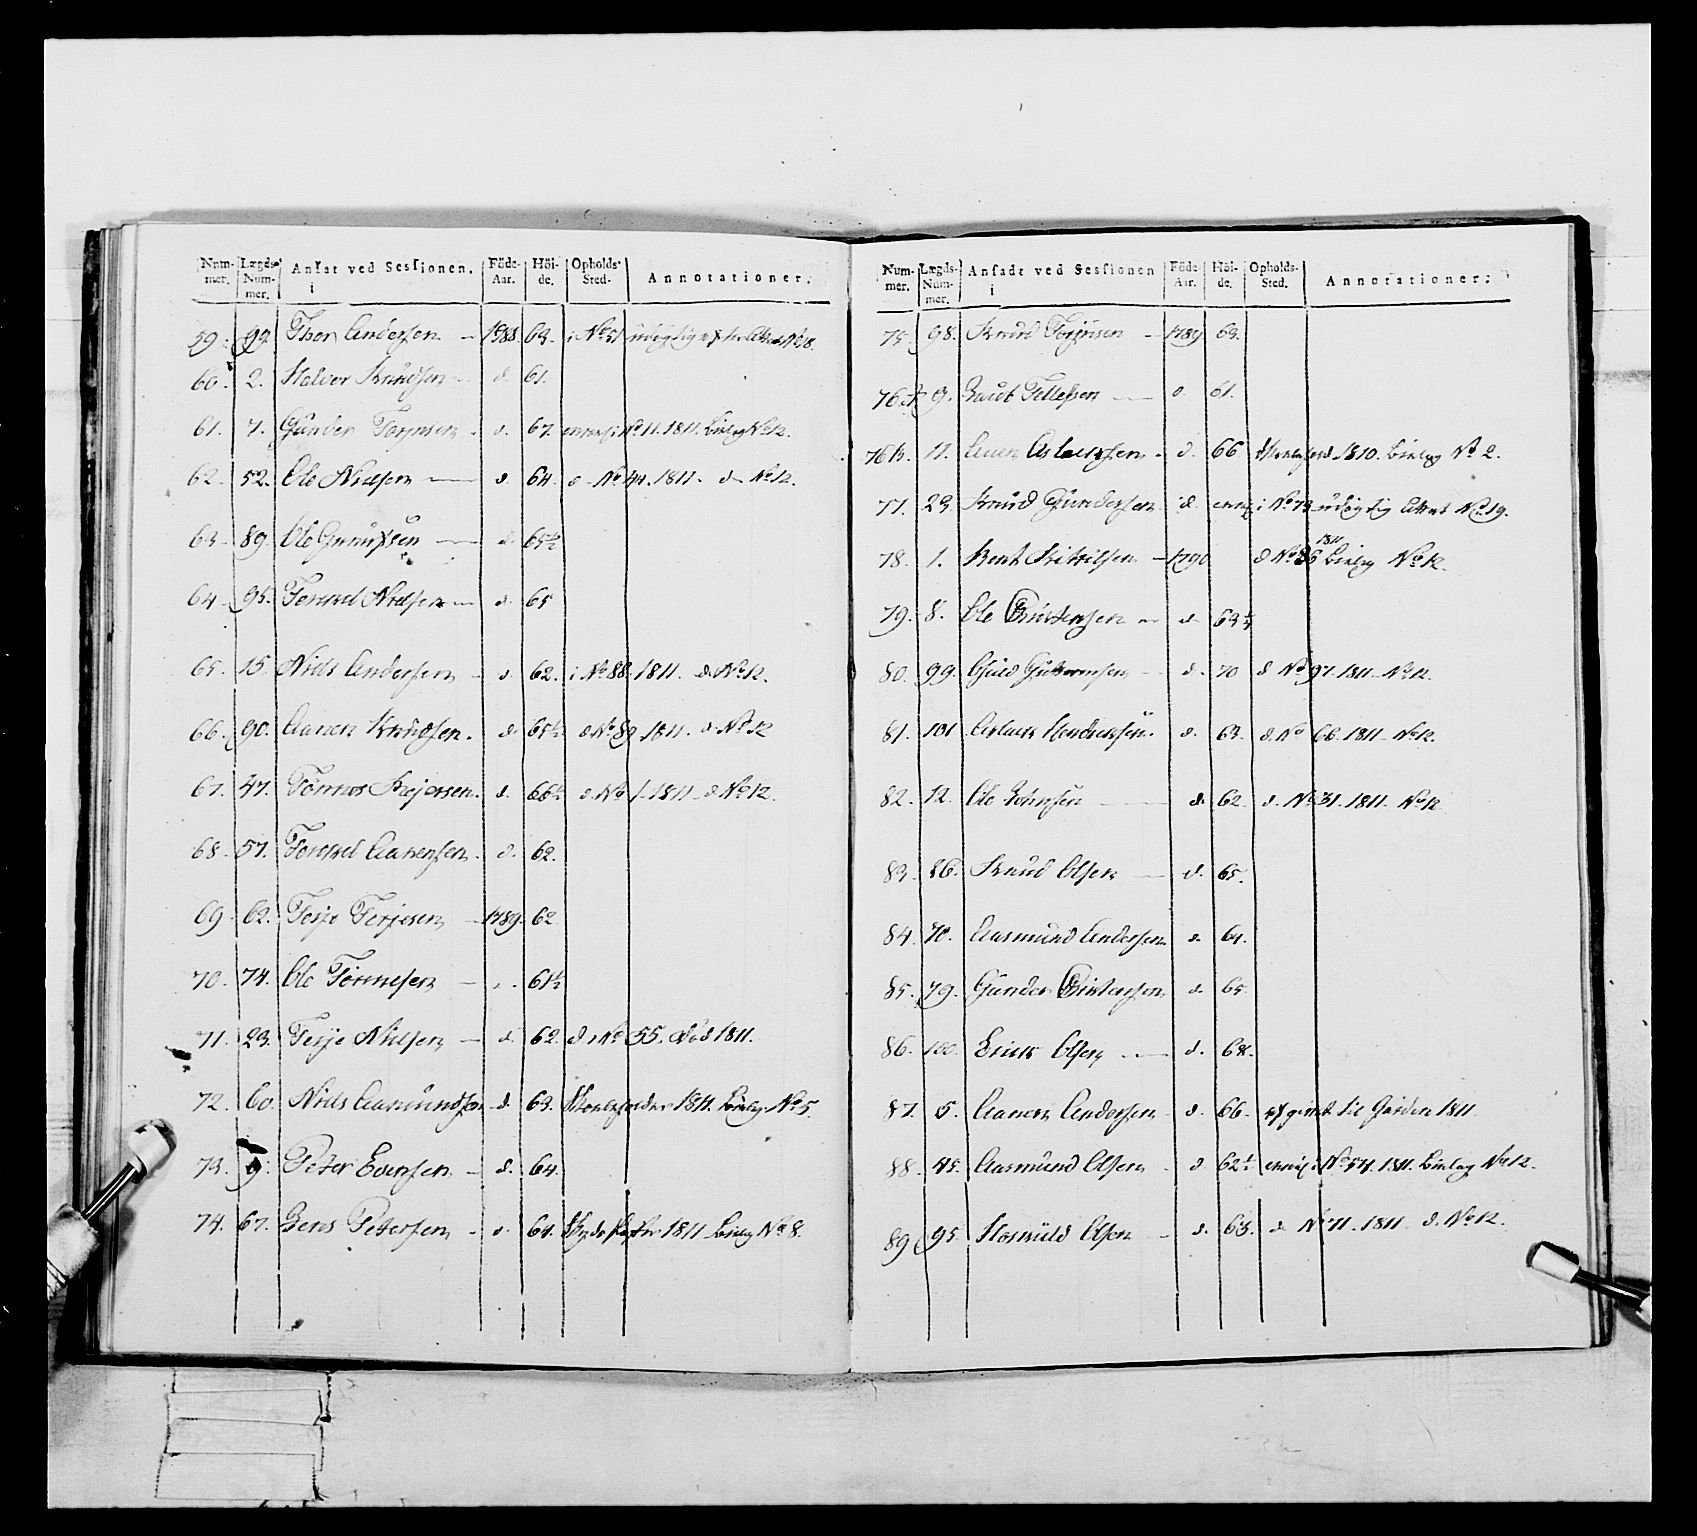 Num-mer. Lægds-Num-mer. Ansat ved Sessionen. i Föde-Aar. Höi-de. Opholds-Sted. Annotationer.
59. 99. Thor Andersen 1788 63. i No 51 udygtig No 18.
60. 2. Halvor Knudsen d. 61.
61. 7. Gunder d. 67. No 11. 1811. Bielag No 12.
62. 52. Ole Nielsen d. 64. d No 44. 1811. d No 12.
63. 89. Ole d. 65½
64. 95. Torkel Nielsen d. 65
65. 15. Niels Andersen d. 62. i No 88. 1811. d. No 12.
66. 90. Aanen Knudsen. d. 65½ d No 89. 1811. d. No 12
67. 47. Tönnes d. 66½ d. No 1. 1811. d. No 12.
68. 57. Torkel Aanensen. d. 62.
69. 62. Terje Terjesen 1789. 62
70. 74. Ole Tönnesen 61½
71. 23. Terje Nielsen d. 62. d. No 55. död 1811.
72. 60. Niels Aamundsen d. 63. 1811. Bielag No 5.
73. 9. Peter Evensen d. 64.
74. 67. Jens Petersen d. 64. 1811 Bielag No 8.
Num-mer. Lægds-Num-mer. Ansadt ved Sessionen i Föde-Aar. Höi-de. Opholds-Sted. Annotationer.
75. 98. Knud 1789 63.
76 A 9. Tellefsen d. 61.
76 B. 11. Aanen Aslacksen d. 66 1810. Bielag No 2.
77. 23. Knud Gundersen d. i No 73 udygtig Attest No 19.
1811
78. 1. Bent Kittelsen 1790 d No 86 Bielag No 12.
79. 8. Ole Christensen d. 63¼
80. 99. Guttormsen d. 70 d No 97. 1811. No 12.
81. 101 Aslack d. 63. d. No 66. 1811. No 12.
82. 12. Ole Johnsen d. 62. d. No 31. 1811. No 12
83. 26. Knud Olsen d. 65.
84. 70. Aasmund Andersen d. 64.
85. 79. Gunder Christensen d. 65
86. 100. Erick Olsen d.
87. 5. Aanen Andersen d. 66. Gaarden 1811
88. 45. Aasmund Olsen d. 62½ No 54. 1811. Bielag No 12.
89. 95. Olsen d. 63. d No 71. 1811. d. No 12.